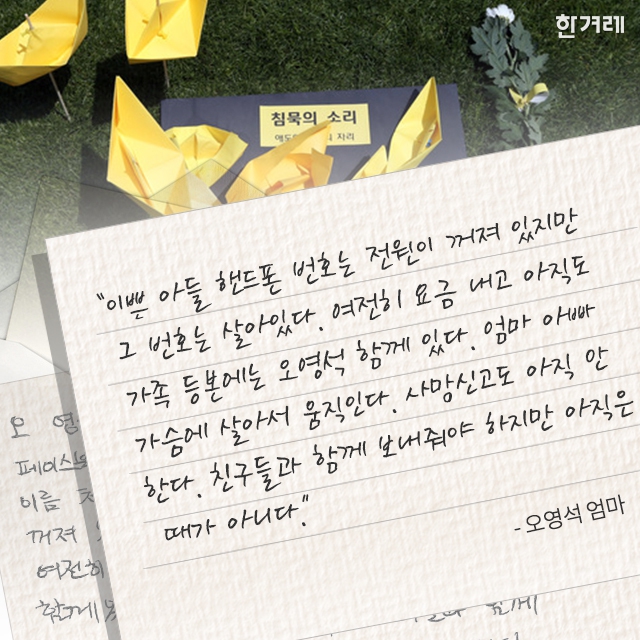 한겨레
침묵의 소리
자리
"이쁜 아들 핸드폰 번호는 전원이 꺼져 있지만
그 번호는 살아있다. 여전히 요금 내고 아직도
가족 등본에는 오영석 함께 있다. 엄마 아빠
가슴에 살아서 움직인다. 사망신고도 아직 안
한다. 친구들과 함께 보내줘야 하지만 아직은
때가 아니다."
- 오영석 엄마
오 영
이름
꺼져
여전히
함께